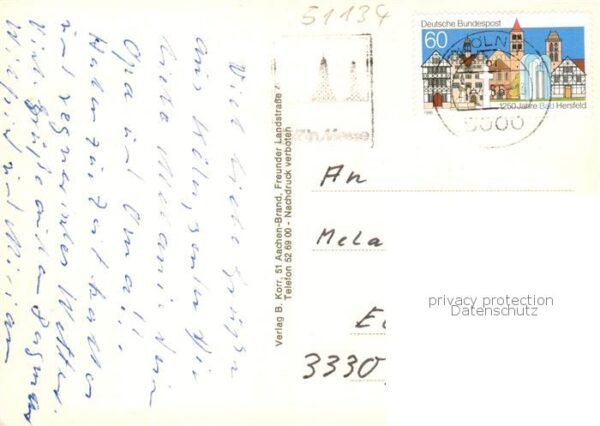 Viele liebe Grüße
aus Köln, senden Dir
liebe Melanie Dein
Opa und Oma!!
Haben zur Zeit kaltes
und regnerisches Wetter.
Viele Grüße auch an Dagmar
Wilfried und Miriam
Verlag B. Korr, 51 Aachen-Brand, Freunder Landstraße
Telefon 52 69 00 - Nachdruck verboten
51134
Deutsche Bundespost
60
1250 Jahre Bad Hersfeld
KÖLN
5000
An
Mela
3330
privacy protection
Datenschutz